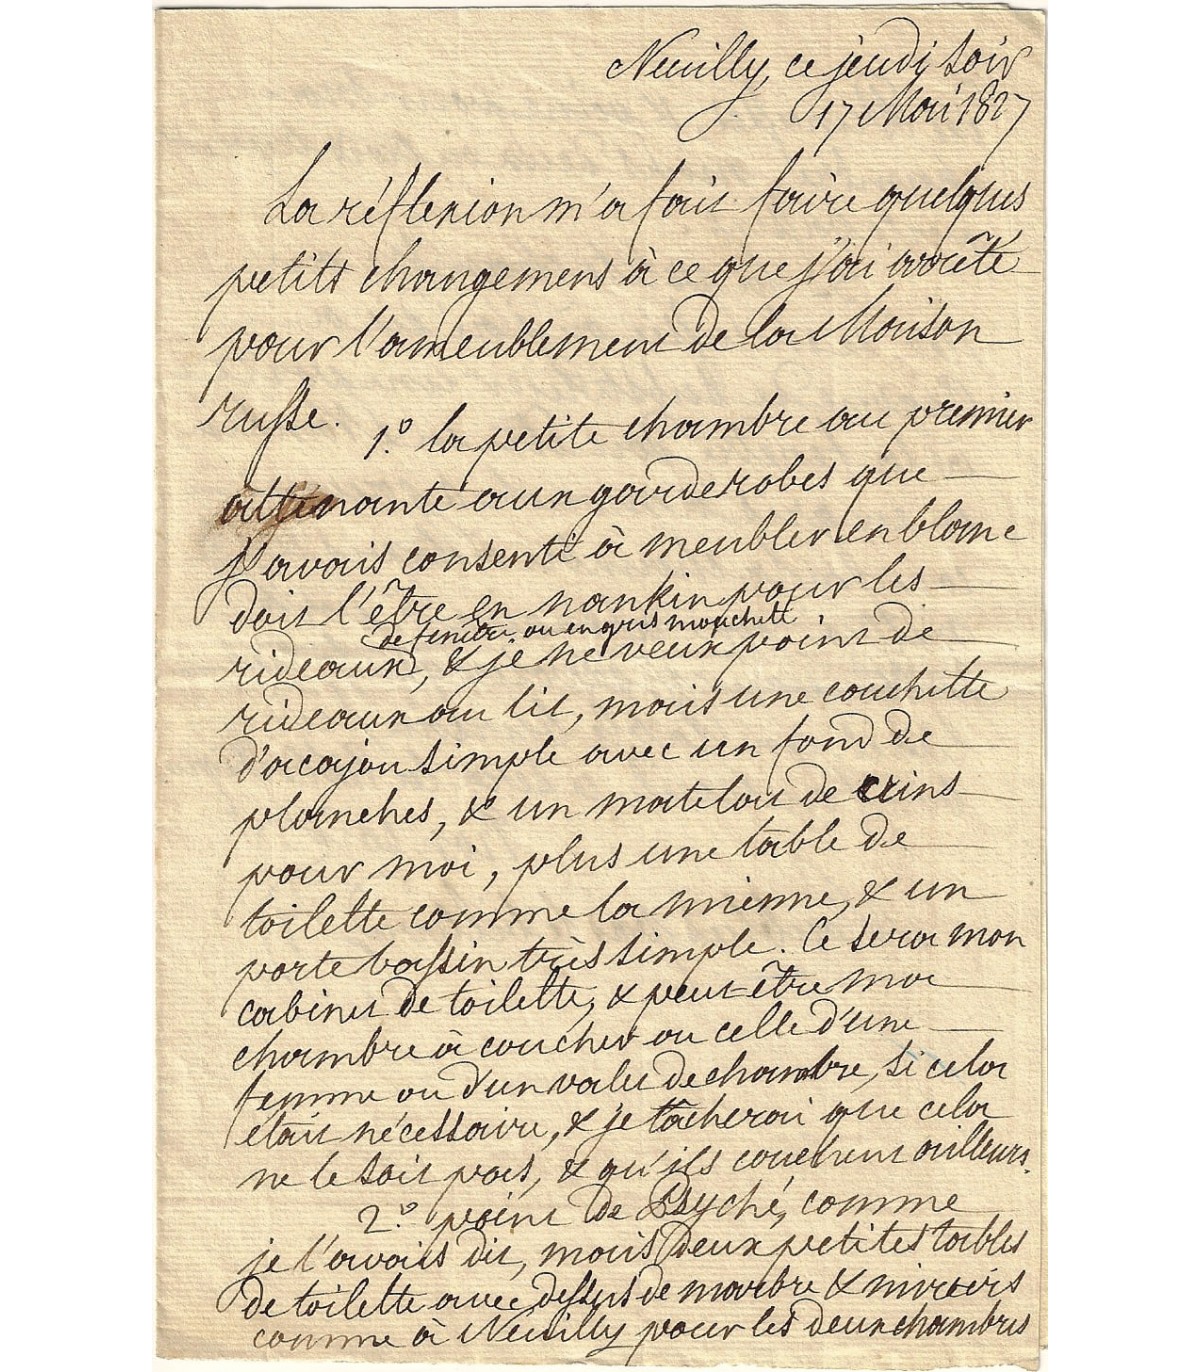 Neuilly, ce jeudi soir
17 Mai 1827
La réflexion m'a fait faire quelques
petits changemens à ce que j'ai arrêté
pour l'ameublement de la Maison
russe.
1.º la petite chambre au premier
attenante aux garderobes que
j'avais consenti à meubler en blanc
doit l'être en nankin pour les
de fenêtre, ou en gris moucheté
rideaux, & je ne veux point de
rideaux au lit, mais une couchette
d'acajou simple avec un fond de
planches, & un matelau de crins
pour moi, plus une table de
toilette comme la mienne, & un
porte bassin très simple. Ce sera mon
cabinet de toilette, & peut-être ma
chambre à coucher ou celle d'une
femme ou d'un valet de chambre, si cela
était nécessaire, & je tâcherai que cela
ne le soit pas, & qu'ils couchent ailleurs.
2.º point de Psyché, comme
je l'avais dit, mais deux petites tables
de toilette avec dessus de marbre & miroirs
comme à Neuilly pour les deux chambres